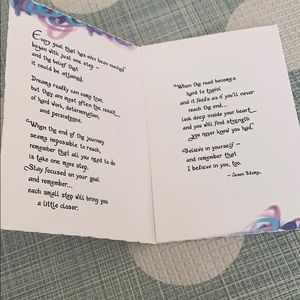 Every goal that has ever been reached
began with just one step —
and the belief that
it could be attained.
Dreams really can come true,
but they are most often the result
of hard work, determination,
and persistence.
When the end of the journey
seems impossible to reach,
remember that all you need to do
is take one more step.
Stay focused on your goal
and remember...
each small step will bring you
a little closer.
When the road becomes
hard to travel
and it feels as if you'll never
reach the end...
look deep inside your heart
and you will find strength
you never knew you had.
Believe in yourself —
and remember that
I believe in you, too.
— Jason